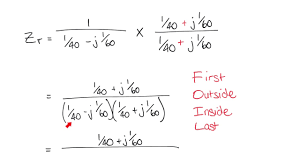 Zr = 1 / (1/40 - j 1/60) × (1/40 + j 1/60) / (1/40 + j 1/60)
= (1/40 + j 1/60) / (1/40 - j 1/60)(1/40 + j 1/60)
First
Outside
Inside
Last
= 1/40 + j 1/60